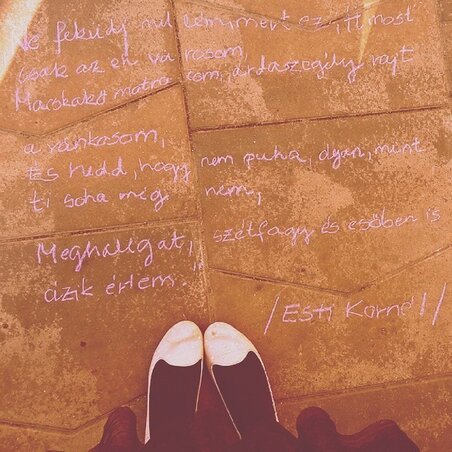 Ne feküdj mellém, mert ez itt most
csak az én városom
Macskakő matracom, járdaszegély rajt
a vánkosom,
És tudd, hogy nem puha, olyan, mint
ti soha még nem,
Meghallgat, szétfagy és esőben is
ázik értem."
/Esti Kornél/